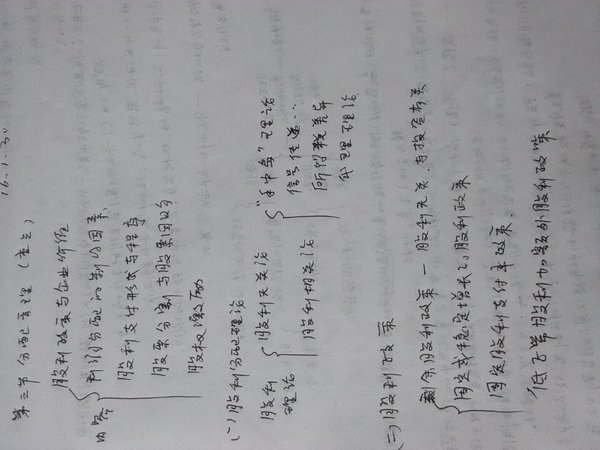 16.1.30
第三节 分配管理(重点)
内容
股利政策与企业价值
利润分配的制约因素
股利支付形式与程序
股票分割与股票回购
股权激励
(一)股利分配理论
股利理论
股利无关论
股利相关论
"手中鸟"理论
信号传递…
所得税差异
代理理论
(二)股利政策
剩余股利政策—股利无关.与投资有关
固定或稳定增长的股利政策
固定股利支付率政策.
低正常股利加额外股利政策